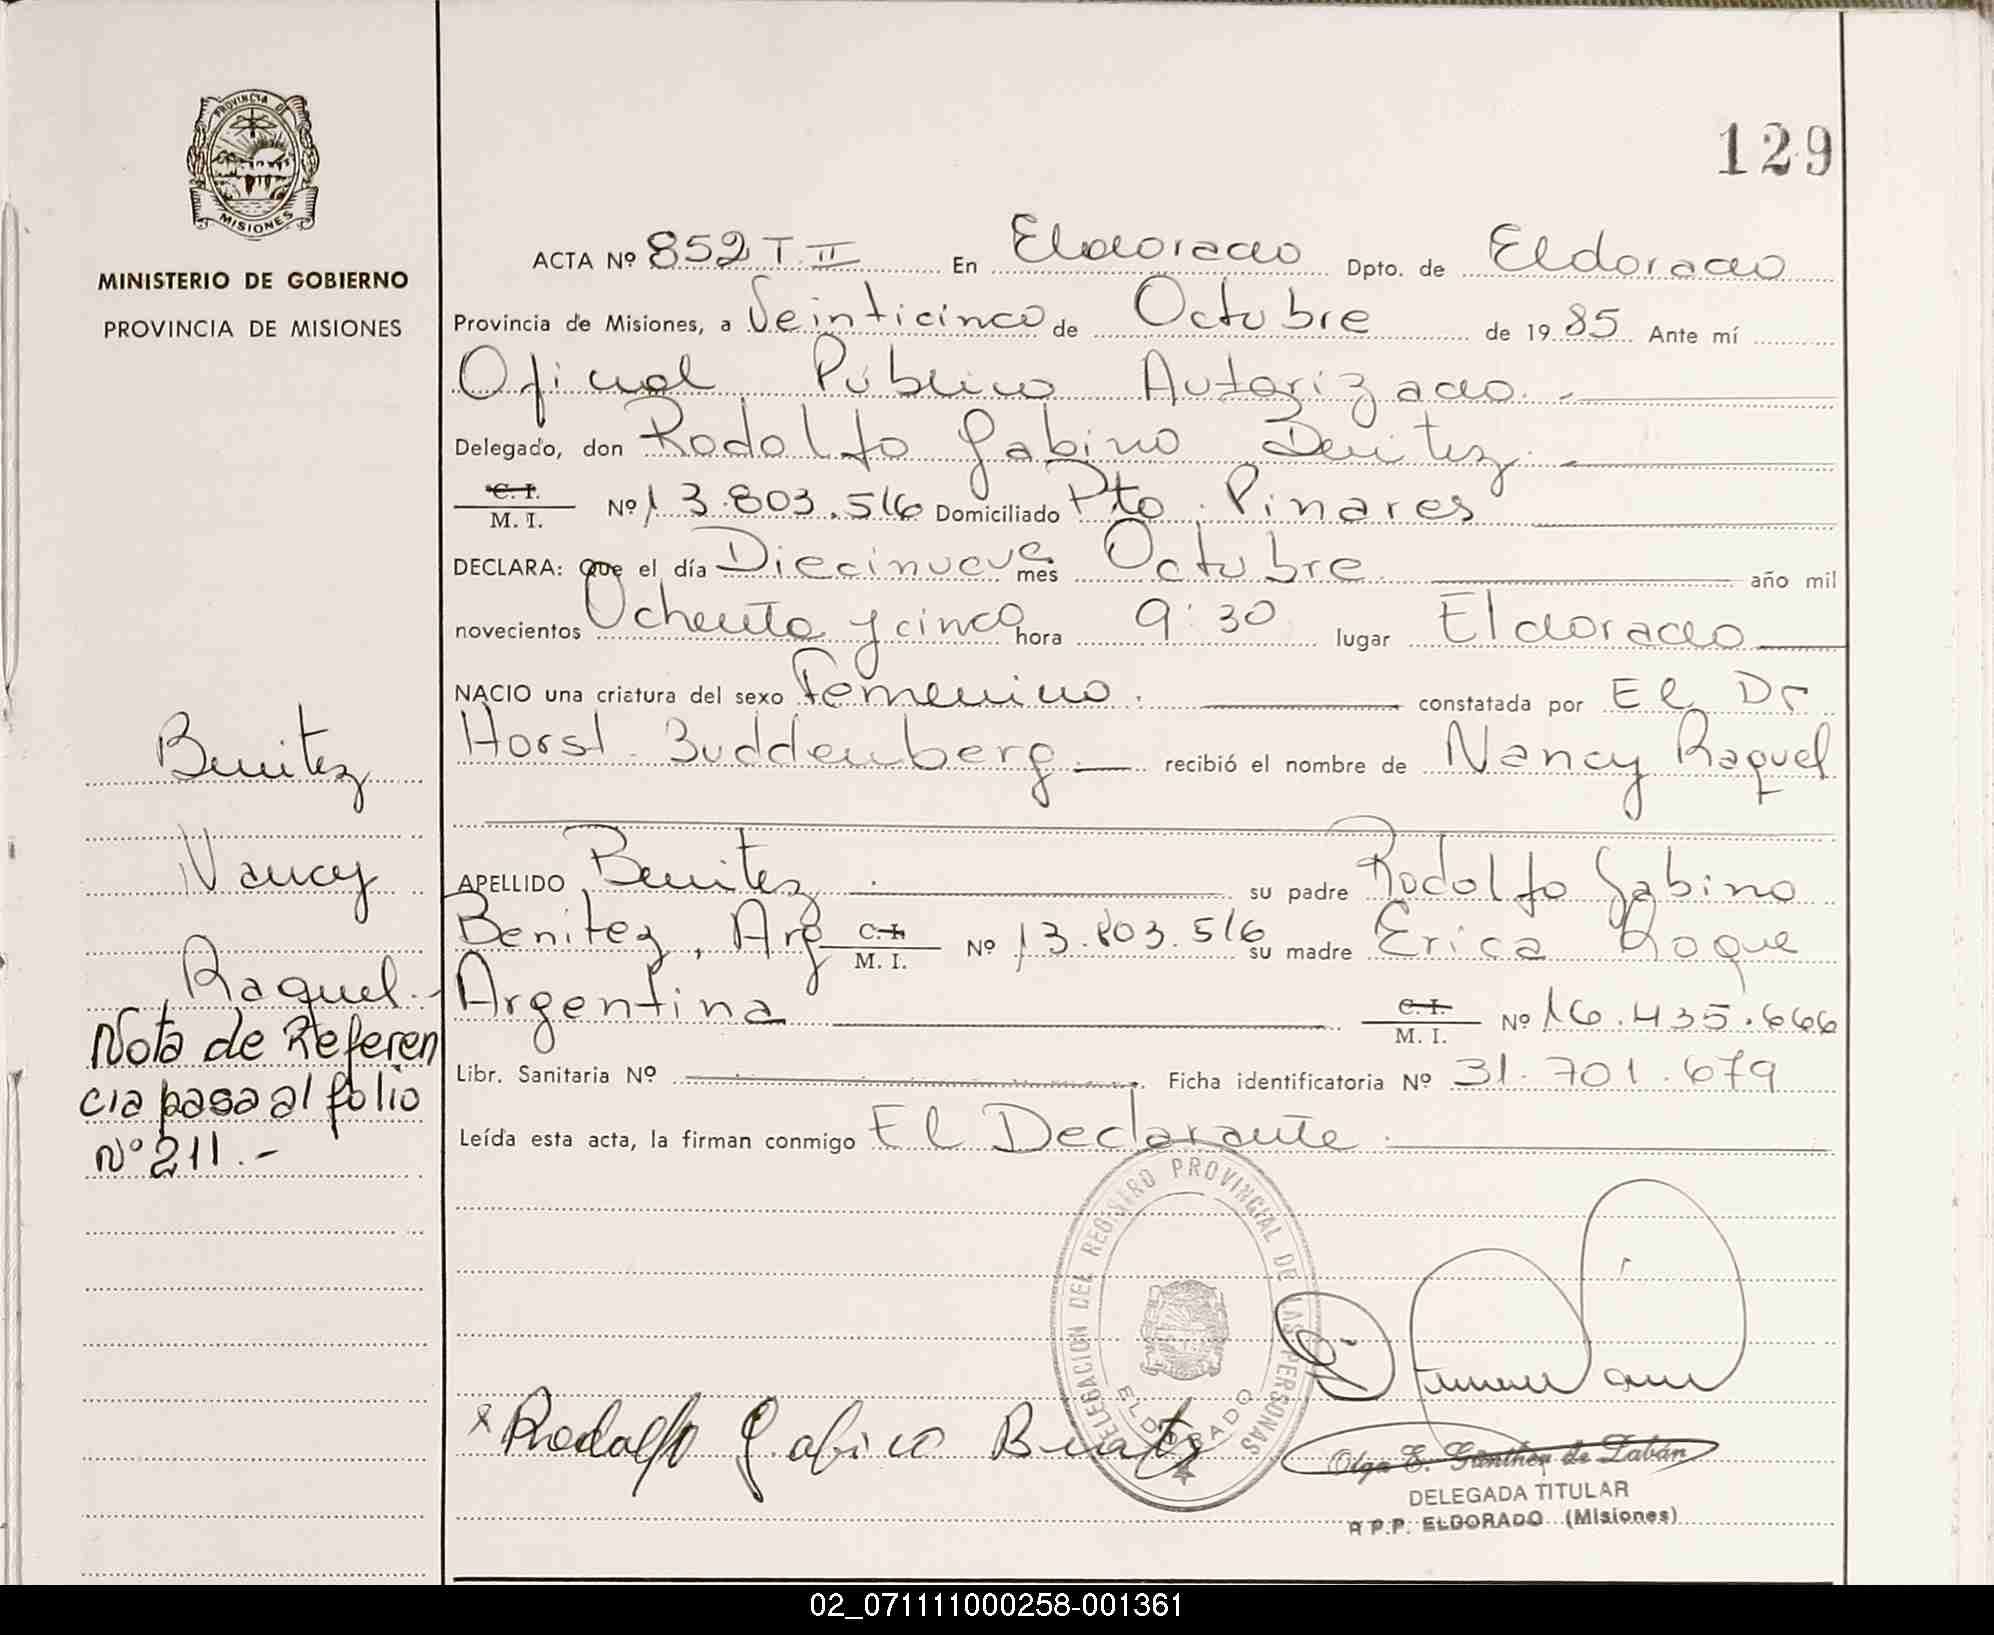 PROVINCIA DE
MISIONES
MINISTERIO DE GOBIERNO
PROVINCIA DE MISIONES
Benitez
Nancy
Raquel.-
Nota de Referen
cia pasa al folio
Nº 211.-
129
ACTA Nº 852 T. II En Eldorado Dpto. de Eldorado
Provincia de Misiones, a Veinticinco de Octubre de 1985 Ante mí
Oficial Público Autorizado.-
Delegado, don Rodolfo Gabino Benitez.
C. I.
M. I. Nº 13.803.516 Domiciliado Pto. Pinares
DECLARA: Que el día Diecinueve mes Octubre año mil
novecientos Ochenta y cinco hora 9:30 lugar Eldorado
NACIO una criatura del sexo Femenino. constatada por El Dr
Horst Buddemberg.- recibió el nombre de Nancy Raquel
APELLIDO Benitez su padre Rodolfo Gabino
Benitez, Arg C. I. M. I. Nº 13.803.516 su madre Erica Roque
Argentina C. I. M. I. Nº 16.435.666
Libr. Sanitaria Nº Ficha identificatoria Nº 31.701.679
Leída esta acta, la firman conmigo El Declarante.
DELEGACION DEL REGISTRO PROVINCIAL DE LAS PERSONAS
ELDORADO
x Rodolfo Gabino Benitez
Olga E. Günther de Zabán
DELEGADA TITULAR
R P.P. ELDORADO (Misiones)
02_071111000258-001361